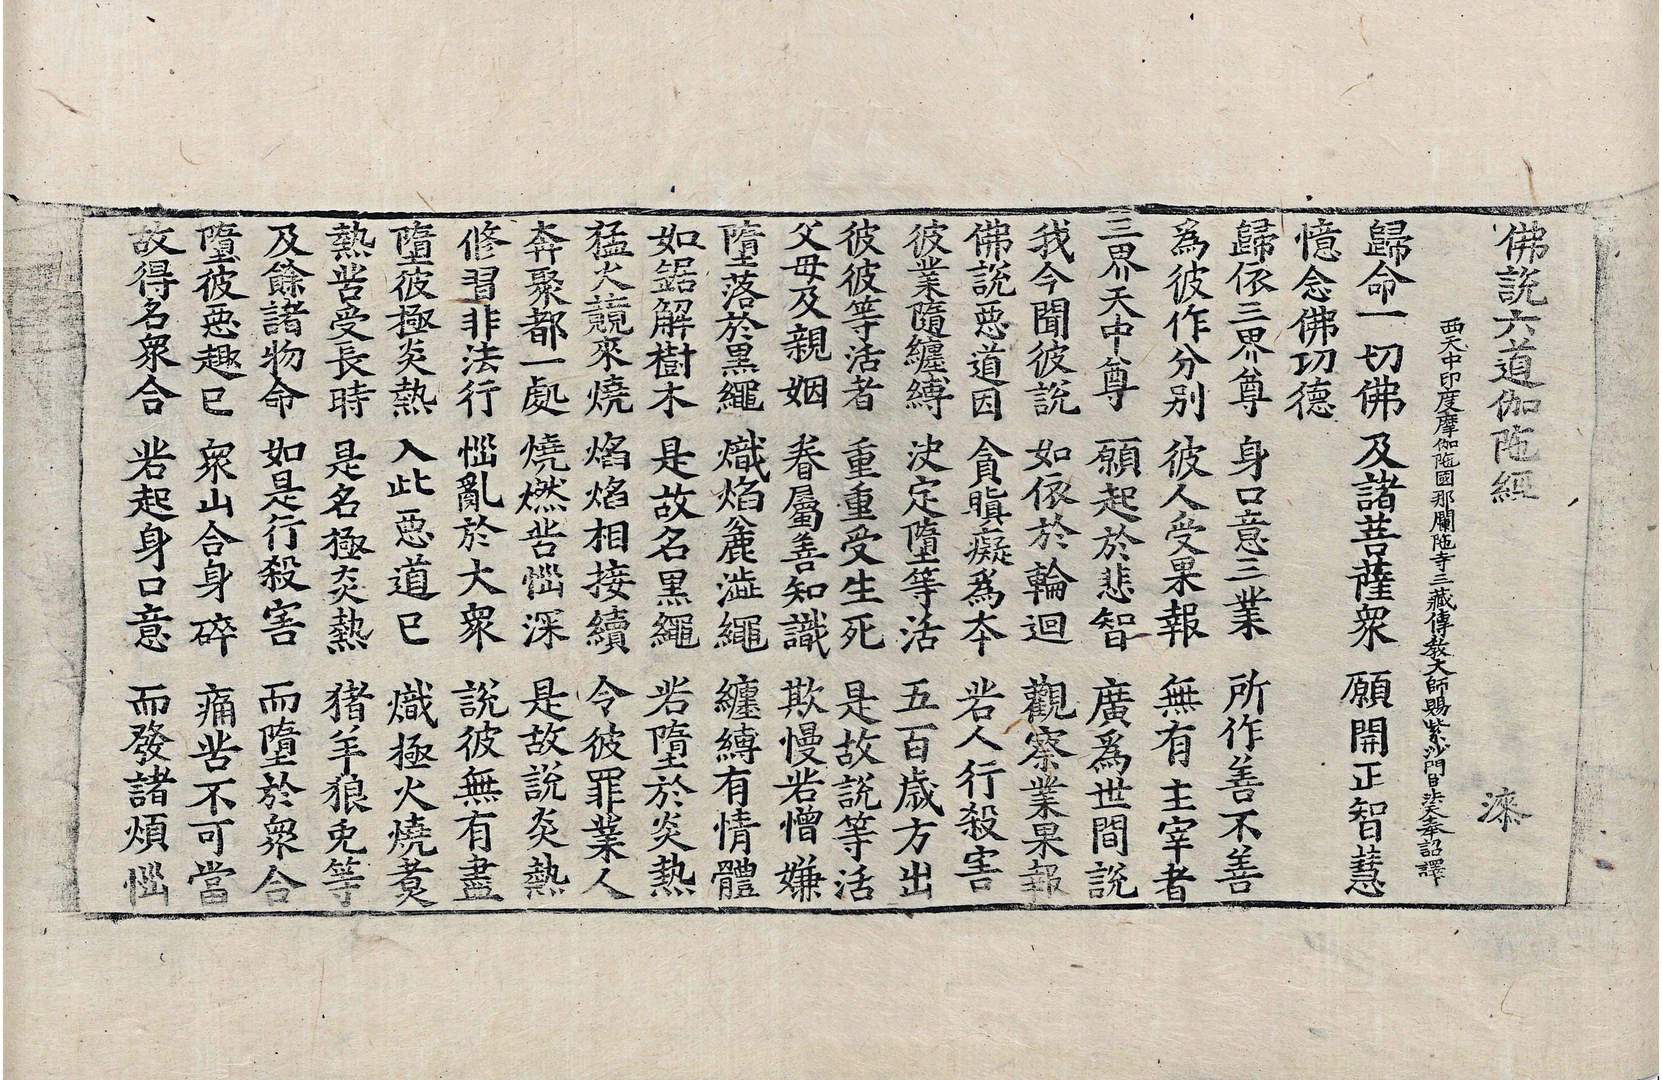 佛說六道伽陁經 漆
西天中印度摩伽陁國那爛陁寺三藏傳教大師賜紫沙門臣法天奉詔譯
歸命一切佛 及諸菩薩衆 願開正智慧
憶念佛功德
歸依三界尊 身口意三業 所作善不善
爲彼作分別 彼人受果報 無有主宰者
三界天中尊 願起於悲智 廣爲世間說
我今聞彼說 如依於輪迴 觀察業果報
佛說惡道因 貪瞋癡爲本 若人行殺害
彼業隨纏縛 決定墮等活 五百歲方出
彼彼等活者 重重受生死 是故說等活
父母及親姻 眷屬善知識 欺慢若憎嫌
墮落於黑繩 熾焰麁澁繩 纏縛有情體
如鋸解樹木 是故名黑繩 若墮於炎熱
猛火競來燒 焰焰相接續 令彼罪業人
奔聚都一處 燒燃苦惱深 是故說炎熱
修習非法行 惱亂於大衆 說彼無有盡
墮彼極炎熱 入此惡道已 熾極火燒煑
熱苦受長時 是名極炎熱 猪羊狼兎等
及餘諸物命 如是行殺害 而墮於衆合
墮彼惡趣已 衆山合身碎 痛苦不可當
故得名衆合 若起身口意 而發諸煩惱